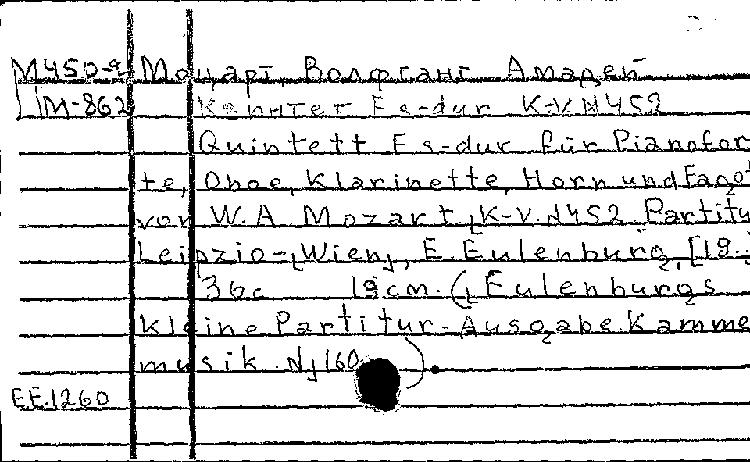 М450-я Моцарт, Волфганг Амадей
LiM-862 Квинтет Es-dur K-V.N452
Quintett Es-dur für Pianofor
te, Oboe, Klarinette, Horn und Fagot
von W. A. Mozart, K-V. N452 Partitu
Leipzig-, Wien, E. Eulenburg, [19..
36c 19cm. (Eulenburgs
Kleine Partitur-Ausgabe. Kamme
musik. N 160).
EE.1260